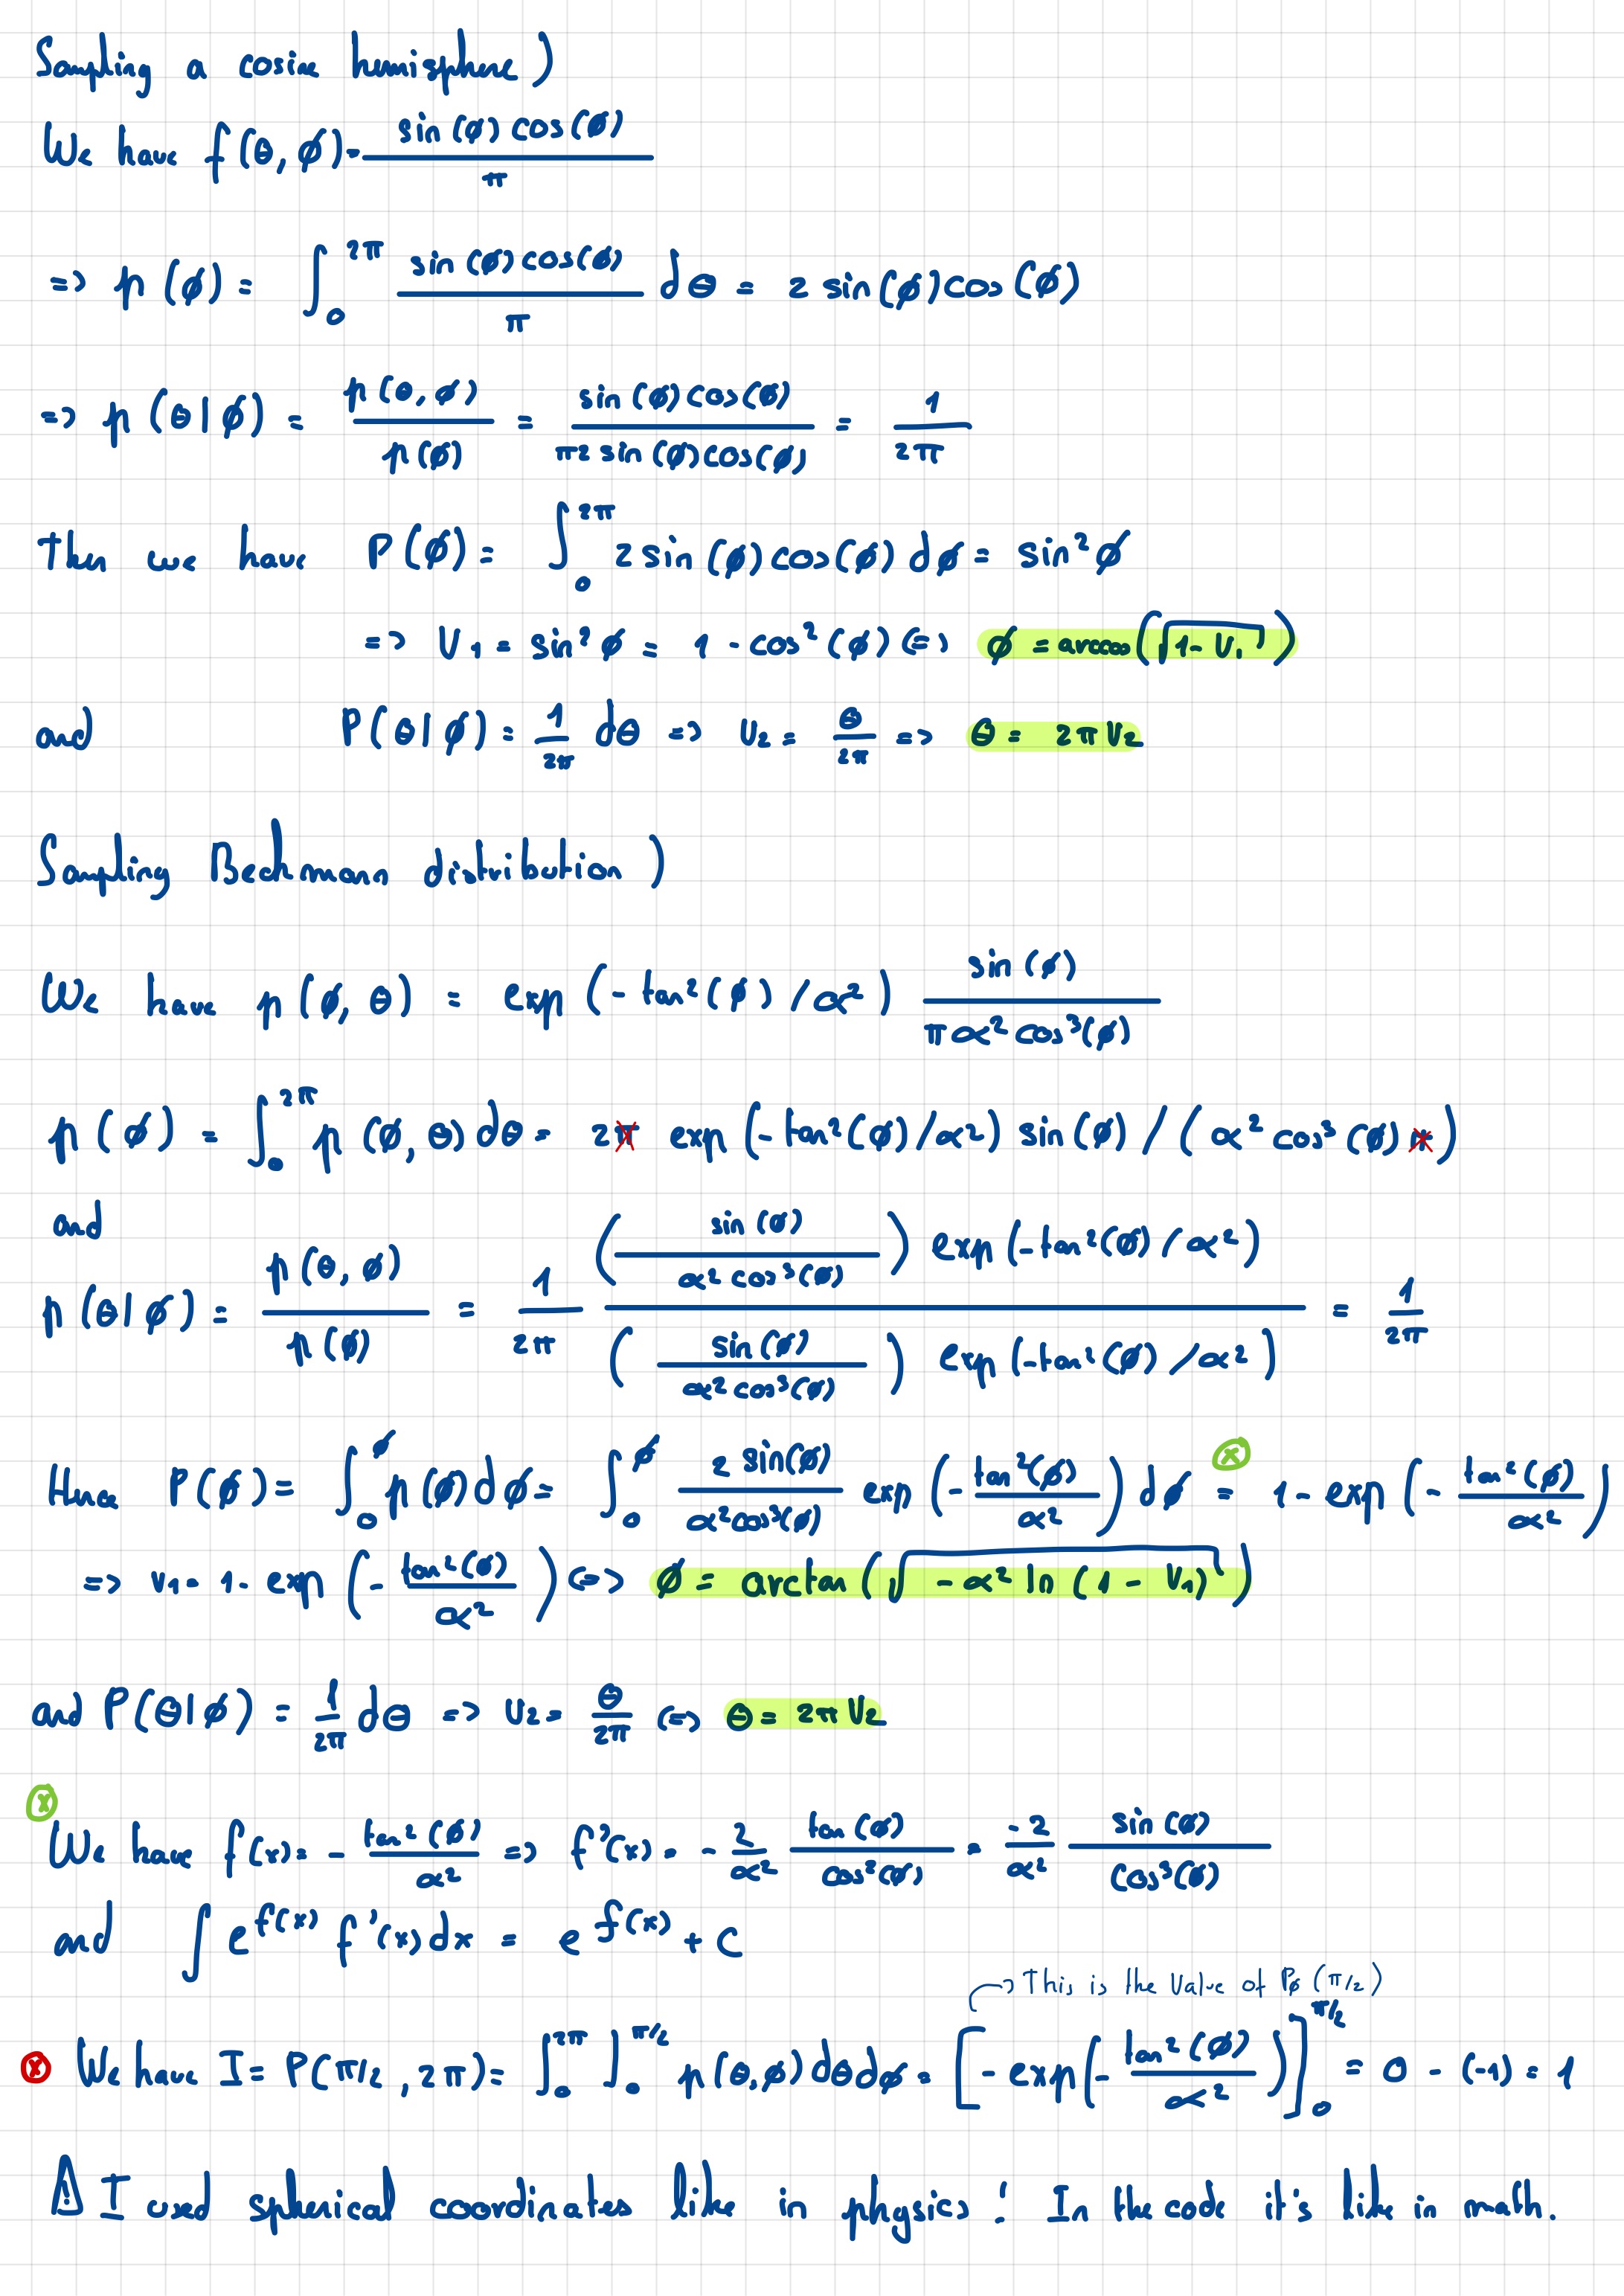 Sampling a cosine hemisphere)
We have f(θ, ϕ) = sin(ϕ)cos(ϕ) / π
=> p(ϕ) = ∫_0^{2π} sin(ϕ)cos(ϕ) / π dθ = 2 sin(ϕ)cos(ϕ)
=> p(θ|ϕ) = p(θ, ϕ) / p(ϕ) = sin(ϕ)cos(ϕ) / π2 sin(ϕ)cos(ϕ) = 1 / 2π
Then we have P(ϕ) = ∫_0^{2π} 2 sin(ϕ)cos(ϕ) dϕ = sin²ϕ
=> U₁ = sin²ϕ = 1 - cos²(ϕ) <=> ϕ = arccos(√(1 - U₁))
and P(θ|ϕ) = 1/2π dθ => U₂ = θ/2π => θ = 2π U₂
Sampling Beckmann distribution)
We have p(ϕ, θ) = exp(-tan²(ϕ)/α²) sin(ϕ) / πα²cos³(ϕ)
p(ϕ) = ∫_0^{2π} p(ϕ, θ)dθ = 2π exp(-tan²(ϕ)/α²) sin(ϕ) / (α² cos³(ϕ) π)
and
p(θ|ϕ) = p(θ, ϕ) / p(ϕ) = 1/2π (sin(ϕ) / α²cos³(ϕ)) exp(-tan²(ϕ)/α²) / (sin(ϕ) / α²cos³(ϕ)) exp(-tan²(ϕ)/α²) = 1/2π
Hence P(ϕ) = ∫_0^ϕ p(ϕ)dϕ = ∫_0^ϕ 2 sin(ϕ) / α²cos³(ϕ) exp(-tan²(ϕ)/α²) dϕ =^ⓧ 1 - exp(-tan²(ϕ)/α²)
=> U₁ = 1 - exp(-tan²(ϕ)/α²) <=> ϕ = arctan(√(-α² ln(1 - U₁)))
and P(θ|ϕ) = 1/2π dθ => U₂ = θ/2π <=> θ = 2π U₂
ⓧ
We have f(x) = - tan²(ϕ)/α² => f'(x) = - 2/α² tan(ϕ)/cos²(ϕ) = -2/α² sin(ϕ)/cos³(ϕ)
and ∫ e^{f(x)} f'(x)dx = e^{f(x)} + c
-> This is the value of Pϕ(π/2)
ⓧ We have I = P(π/2, 2π) = ∫_0^{2π} ∫_0^{π/2} p(θ,ϕ)dθdϕ = [-exp(-tan²(ϕ)/α²)]_0^{π/2} = 0 - (-1) = 1
⚠ I used spherical coordinates like in physics! In the code it's like in math.